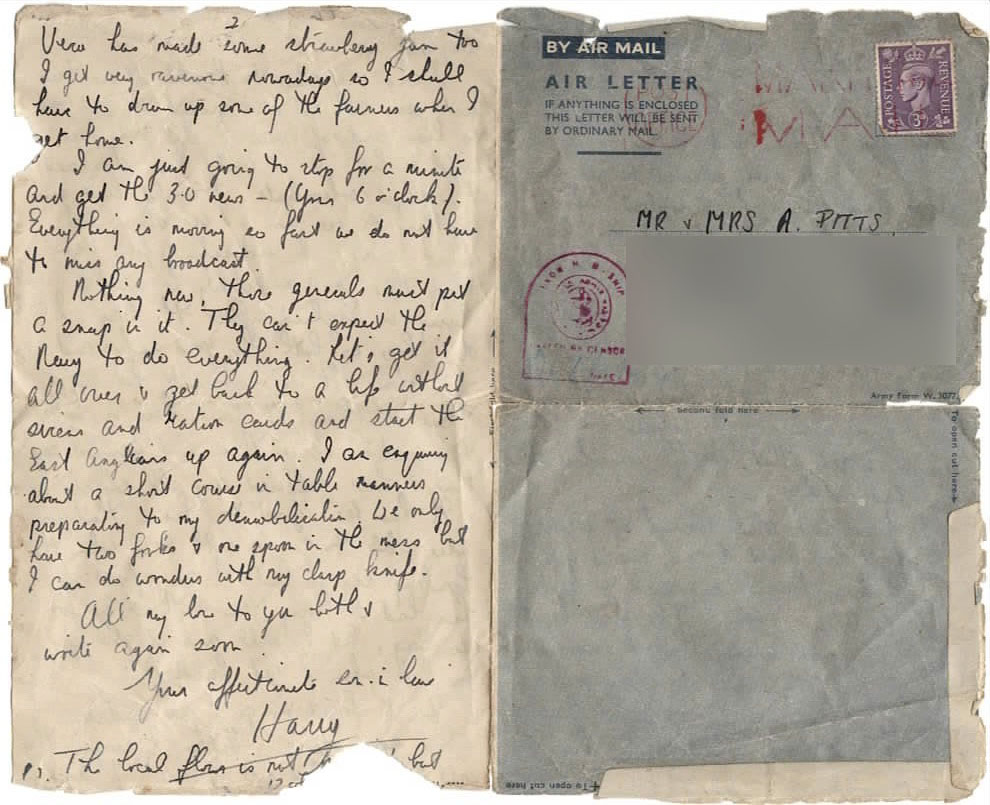 2
Vera has made some strawberry jam too
I get very ravenous nowadays so I shall
have to drum up some of the farmers when I
get home.
I am just going to stop for a minute
and get the 3.0 news - (Yours 6 o'clock).
Everything is moving so fast we do not have
to miss any broadcast.
Nothing new, those generals must put
a snap in it. They can't expect the
Navy to do everything. Let's get it
all over & get back to a life without
sirens and ration cards and start the
East Anglians up again. I am enquiring
about a short course in table manners
preparatory to my demobilisation. We only
have two forks & one spoon in the mess but
I can do wonders with my clasp knife.
All my love to you both &
write again soon.
Your affectionate son-in-law
Harry
P.S. The local is not but
BY AIR MAIL
AIR LETTER
IF ANYTHING IS ENCLOSED
THIS LETTER WILL BE SENT
BY ORDINARY MAIL.
POSTAGE REVENUE
3D
MR & MRS A. PITTS.
FROM H.M. SHIP
CENSOR
Army Form W.3077.
Second fold here
To open cut here
To open cut here